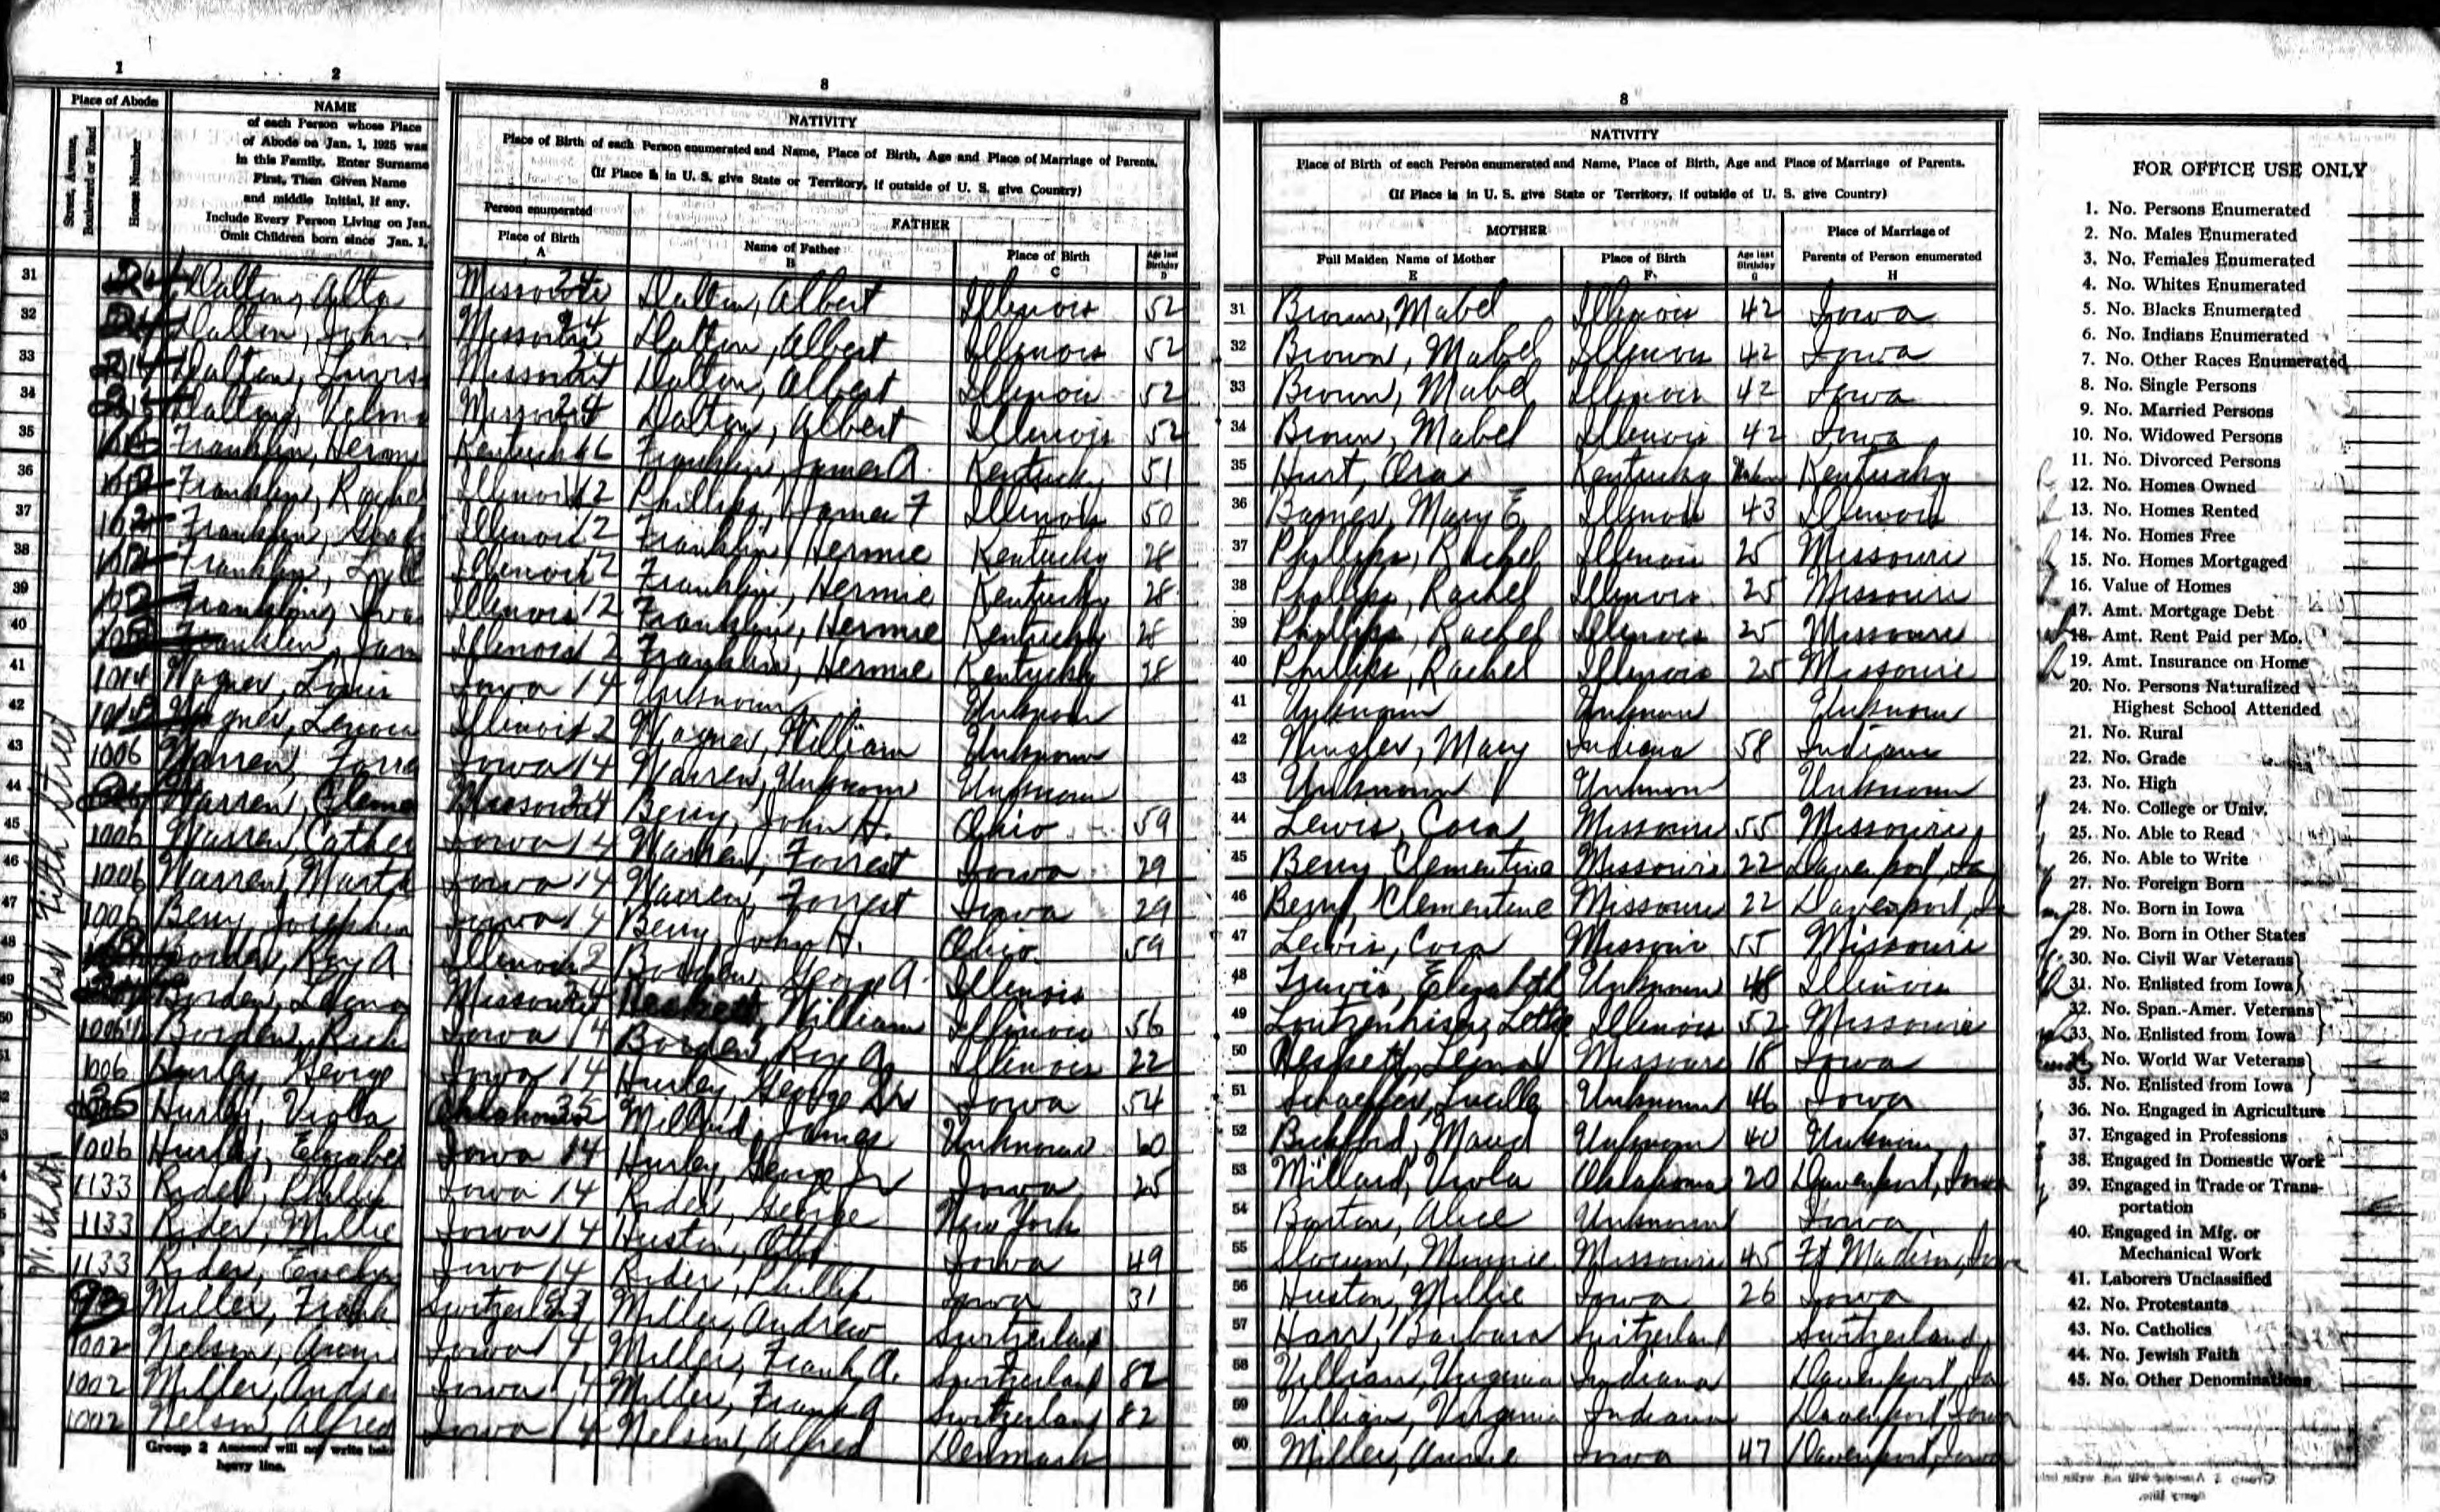 1
2
8
8
Place of Abode
Street, Avenue, Boulevard or Road
House Number
NAME
of each Person whose Place
of Abode on Jan. 1, 1925 was
in this Family. Enter Surname
First, Then Given Name
and middle Initial, if any.
Include Every Person Living on Jan.
Omit Children born since Jan. 1,
NATIVITY
Place of Birth of each Person enumerated and Name, Place of Birth, Age and Place of Marriage of Parents.
(If Place is in U. S. give State or Territory, if outside of U. S. give Country)
Person enumerated
Place of Birth
A
FATHER
Name of Father
B
Place of Birth
C
Age last Birthday
D
NATIVITY
Place of Birth of each Person enumerated and Name, Place of Birth, Age and Place of Marriage of Parents.
(If Place is in U. S. give State or Territory, if outside of U. S. give Country)
MOTHER
Full Maiden Name of Mother
E
Place of Birth
F
Age last Birthday
G
Place of Marriage of
Parents of Person enumerated
H
West Fifth Street
W. 6th St.
31 Dalton, Alta Missouri 24 Dalton, Albert Illinois 52 31 Brown, Mabel Illinois 42 Iowa
32 Dalton, John Missouri 24 Dalton, Albert Illinois 52 32 Brown, Mabel Illinois 42 Iowa
33 Dalton, Missouri 24 Dalton, Albert Illinois 52 33 Brown, Mabel Illinois 42 Iowa
34 Dalton, Velma Missouri 24 Dalton, Albert Illinois 52 34 Brown, Mabel Illinois 42 Iowa
35 Franklin, Hermie Kentucky 16 Franklin, James A. Kentucky 51 35 Hurt, Ora Kentucky Kentucky
36 Franklin, Rachel Illinois 12 Phillips, James F Illinois 50 36 Barnes, Mary E Illinois 43 Illinois
37 Franklin, Illinois 12 Franklin, Hermie Kentucky 28 37 Phillips, Rachel Illinois 25 Missouri
38 Franklin, Illinois 12 Franklin, Hermie Kentucky 28 38 Phillips, Rachel Illinois 25 Missouri
39 Franklin, Illinois 12 Franklin, Hermie Kentucky 28 39 Phillips, Rachel Illinois 25 Missouri
40 Franklin, Jam Illinois 12 Franklin, Hermie Kentucky 28 40 Phillips, Rachel Illinois 25 Missouri
41 1014 Wagner, Louis Iowa 14 Unknown Unknown 41 Unknown Unknown Unknown
42 Wagner, Lenora Illinois 12 Wagner, William Unknown 42 Mary Indiana 58 Indiana
43 1006 Warren, Forre Iowa 14 Warren, Unknown Unknown 43 Unknown Unknown Unknown
44 Warren, Cleme Missouri 24 Berry, John H. Ohio 59 44 Lewis, Cora Missouri 55 Missouri
45 1006 Warren, Cather Iowa 14 Warren, Forrest Iowa 29 45 Berry, Clementine Missouri 22 Davenport, Ia
46 1006 Warren, Marth Iowa 14 Warren, Forrest Iowa 29 46 Berry, Clementine Missouri 22 Davenport, Ia
47 1006 Berry, Josephin Iowa 14 Berry, John H. Ohio 59 47 Lewis, Cora Missouri 55 Missouri
48 Borden, Roy A Illinois 12 Borden, George A. Illinois 48 Travis, Elizabeth Unknown 48 Illinois
49 Borden, Leona Missouri 24 William Illinois 56 49 Illinois 52 Missouri
50 1006 Borden, Rich Iowa 14 Borden, Roy A Illinois 22 50 Heskett, Leona Missouri 18 Iowa
51 1006 Hurley, George Iowa 14 Hurley, George Sr Iowa 54 51 Schaeffer, Lucille Unknown 46 Iowa
Hurley, Viola Oklahoma 35 Millard, James Unknown 60 52 Bickford, Maud Unknown 40 Unknown
1006 Hurley, Elizabet Iowa 14 Hurley, George Jr Iowa 25 53 Millard, Viola Oklahoma 20 Davenport, Iowa
1133 Rider, Phillip Iowa 14 Rider, George New York 54 Barton, Alice Unknown Iowa
1133 Rider, Millie Iowa 14 Huston, Otto Iowa 49 55 Slocum, Minnie Missouri 45 Ft Madison, Iowa
1133 Rider, Evelyn Iowa 14 Rider, Phillip Iowa 31 56 Huston, Millie Iowa 26 Iowa
93 Miller, Frank Switzerland 93 Miller, Andrew Switzerland 57 Harr, Barbara Switzerland Switzerland
1002 Nelson, Anni Iowa 14 Miller, Frank A. Switzerland 82 58 Villian, Virginia Indiana Davenport, Ia
1002 Miller, Andre Iowa 14 Miller, Frank A Switzerland 82 59 Villian, Virginia Indiana Davenport, Iowa
1002 Nelson, Alfred Iowa 14 Nelson, Alfred Denmark 60 Miller, Annie Iowa 47 Davenport, Iowa
Group 2 Assessor will not write below
heavy line.
FOR OFFICE USE ONLY
1. No. Persons Enumerated
2. No. Males Enumerated
3. No. Females Enumerated
4. No. Whites Enumerated
5. No. Blacks Enumerated
6. No. Indians Enumerated
7. No. Other Races Enumerated
8. No. Single Persons
9. No. Married Persons
10. No. Widowed Persons
11. No. Divorced Persons
12. No. Homes Owned
13. No. Homes Rented
14. No. Homes Free
15. No. Homes Mortgaged
16. Value of Homes
17. Amt. Mortgage Debt
18. Amt. Rent Paid per Mo.
19. Amt. Insurance on Home
20. No. Persons Naturalized
Highest School Attended
21. No. Rural
22. No. Grade
23. No. High
24. No. College or Univ.
25. No. Able to Read
26. No. Able to Write
27. No. Foreign Born
28. No. Born in Iowa
29. No. Born in Other States
30. No. Civil War Veterans
31. No. Enlisted from Iowa
32. No. Span.-Amer. Veterans
33. No. Enlisted from Iowa
34. No. World War Veterans
35. No. Enlisted from Iowa
36. No. Engaged in Agriculture
37. Engaged in Professions
38. Engaged in Domestic Work
39. Engaged in Trade or Trans-
portation
40. Engaged in Mfg. or
Mechanical Work
41. Laborers Unclassified
42. No. Protestants
43. No. Catholics
44. No. Jewish Faith
45. No. Other Denominations